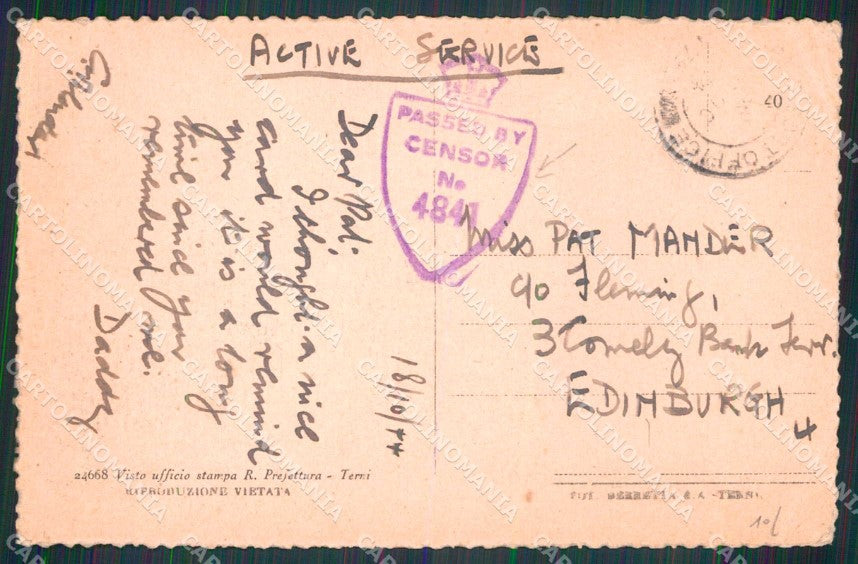 ACTIVE SERVICE
PASSED BY
CENSOR
No
4841
T OFFICE
40
18/10/44
Dear Pat.
I thought a nice
card would remind
you it is a long
time since you
rememberd me.
Daddy
Miss PAT MANDER
c/o Fleming,
3 Comely Bank Terr.
EDINBURGH
4
24668 Visto ufficio stampa R. Prefettura - Terni
RIPRODUZIONE VIETATA
FOT. BERRETTA & A. -TERNI
10/
CARTOLINOMANIA